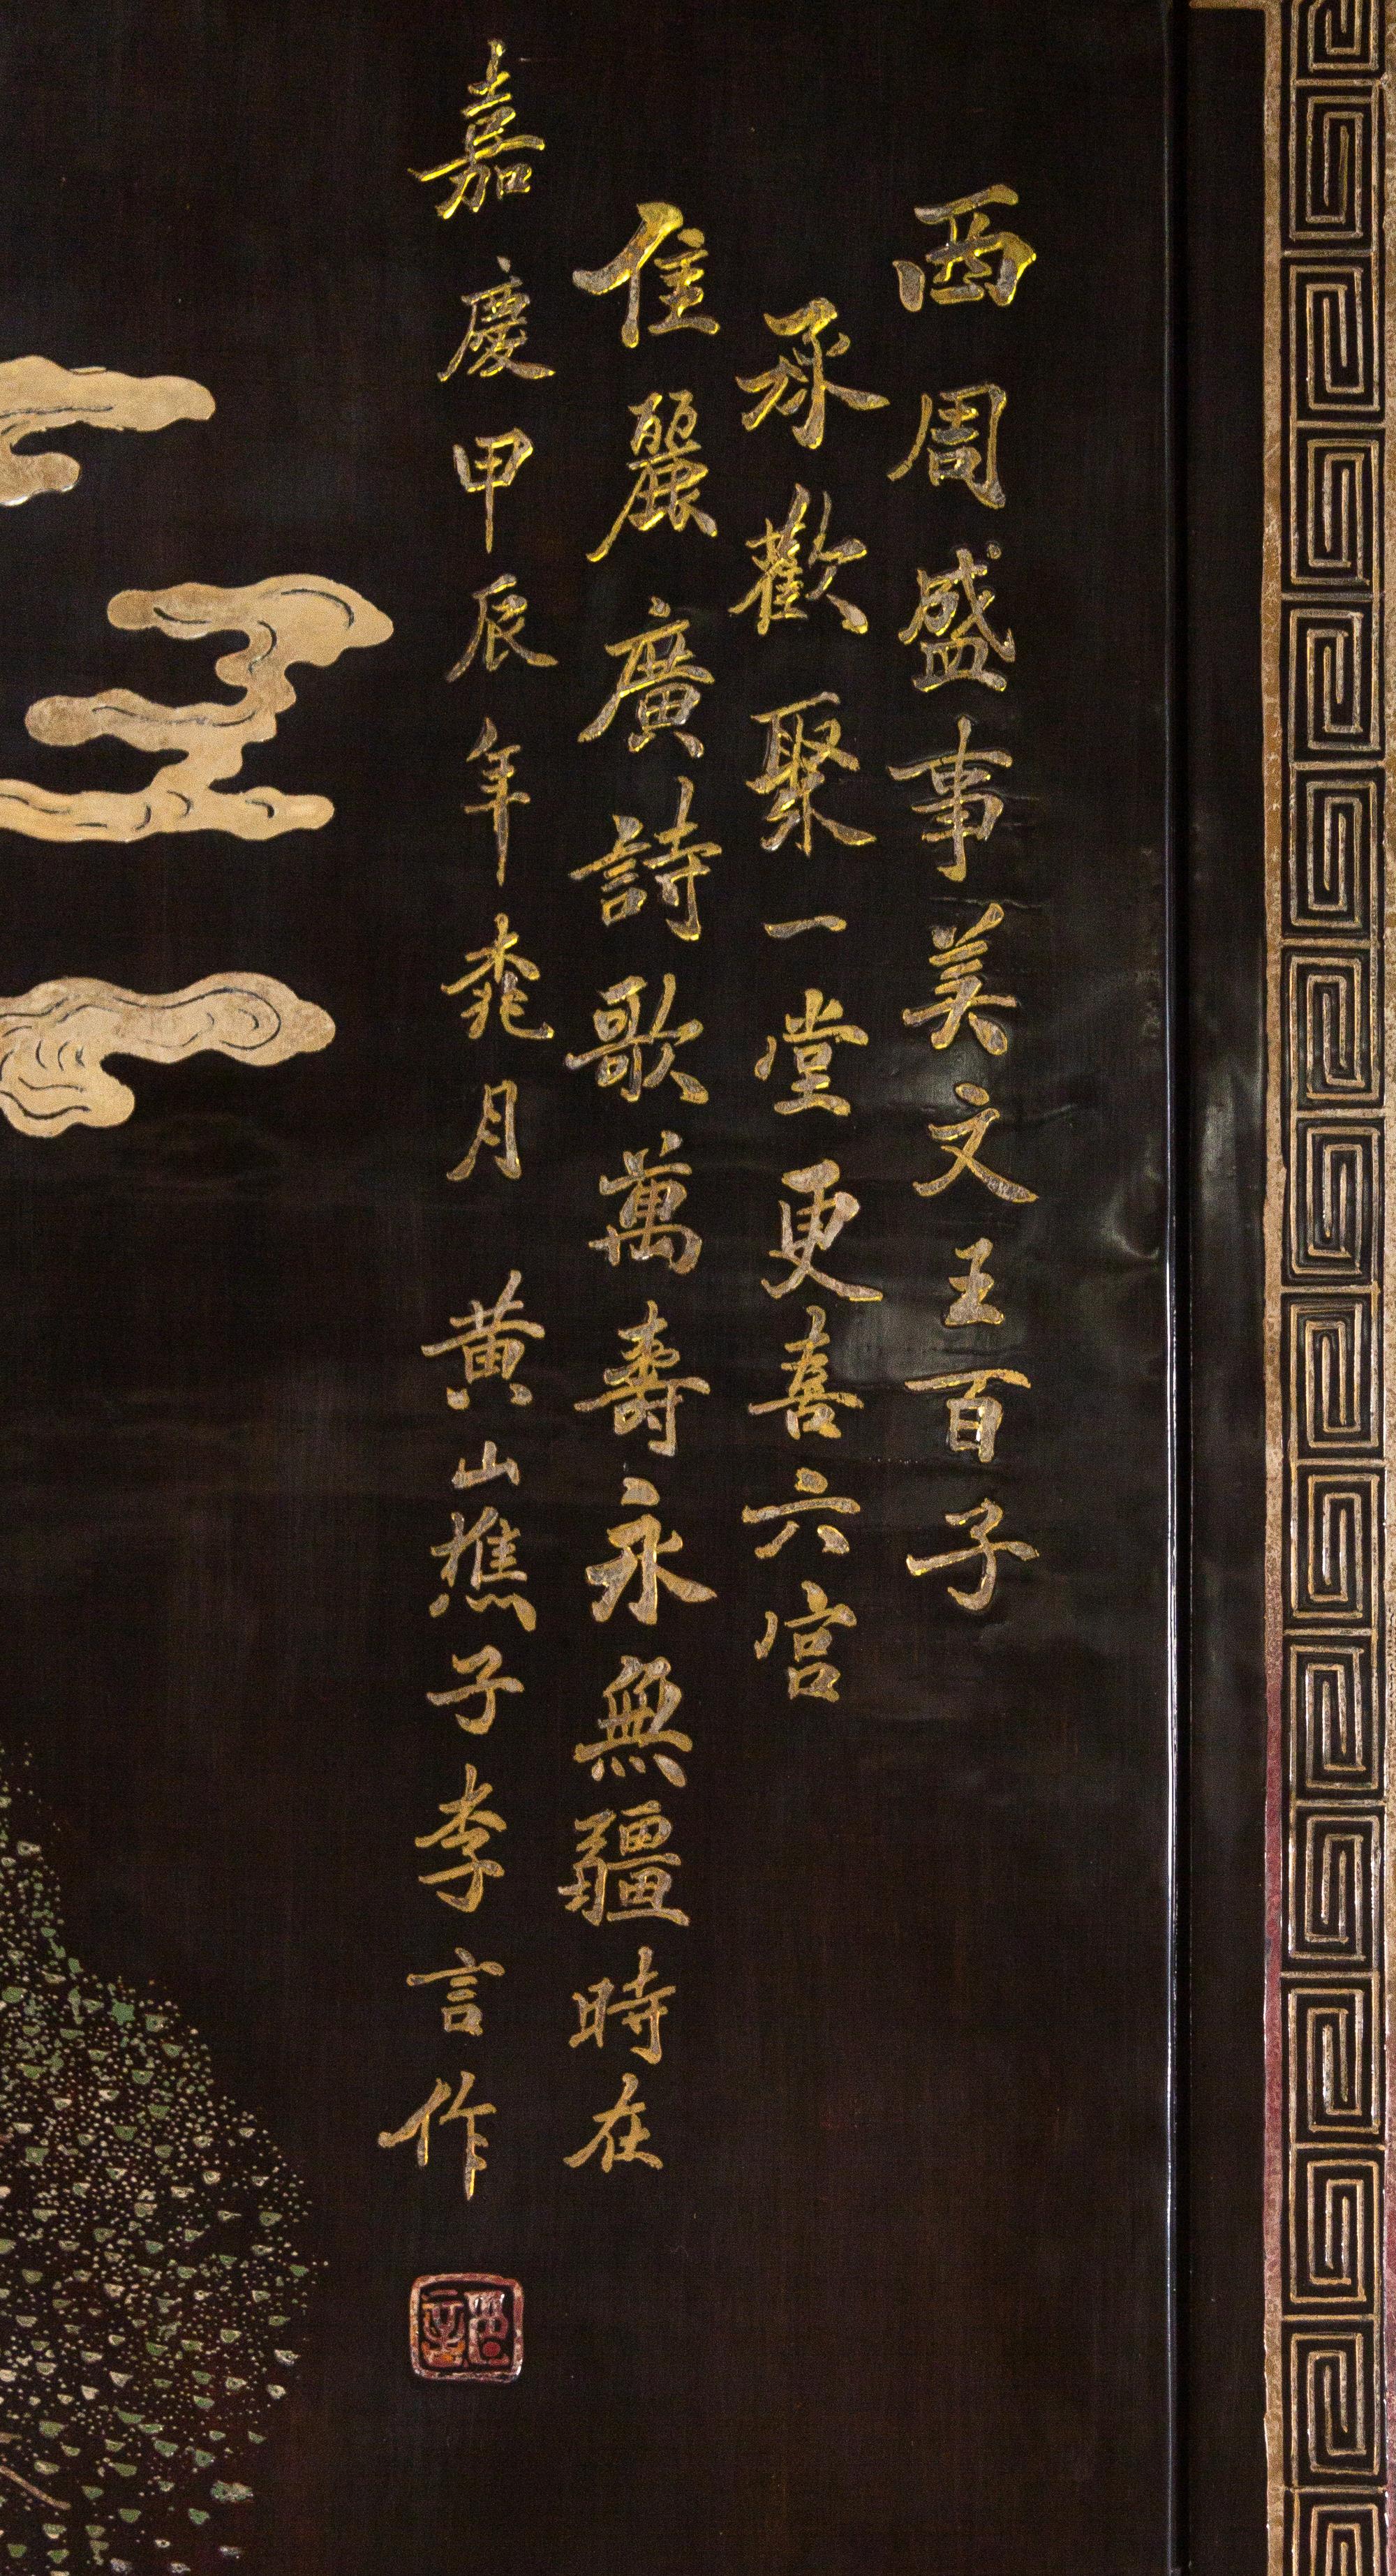 西周盛事美文王百子
承歡聚一堂更喜六宮
佳麗廣詩歌萬壽永無疆時在
嘉慶甲辰年桃月 黃山樵子李言作